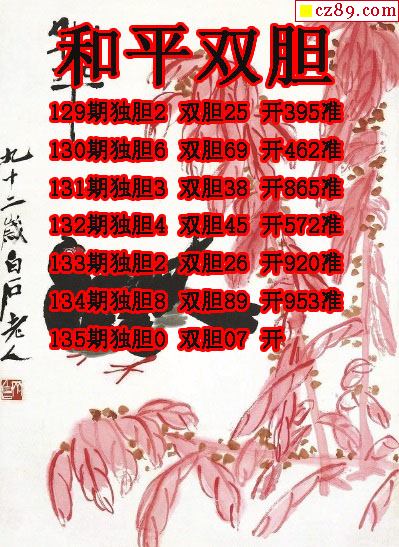 cz89.com
和平双胆
129期独胆2 双胆25 开395准
130期独胆6 双胆69 开462准
131期独胆3 双胆38 开865准
132期独胆4 双胆45 开572准
133期独胆2 双胆26 开920准
134期独胆8 双胆89 开953准
135期独胆0 双胆07 开
九十二岁白石老人